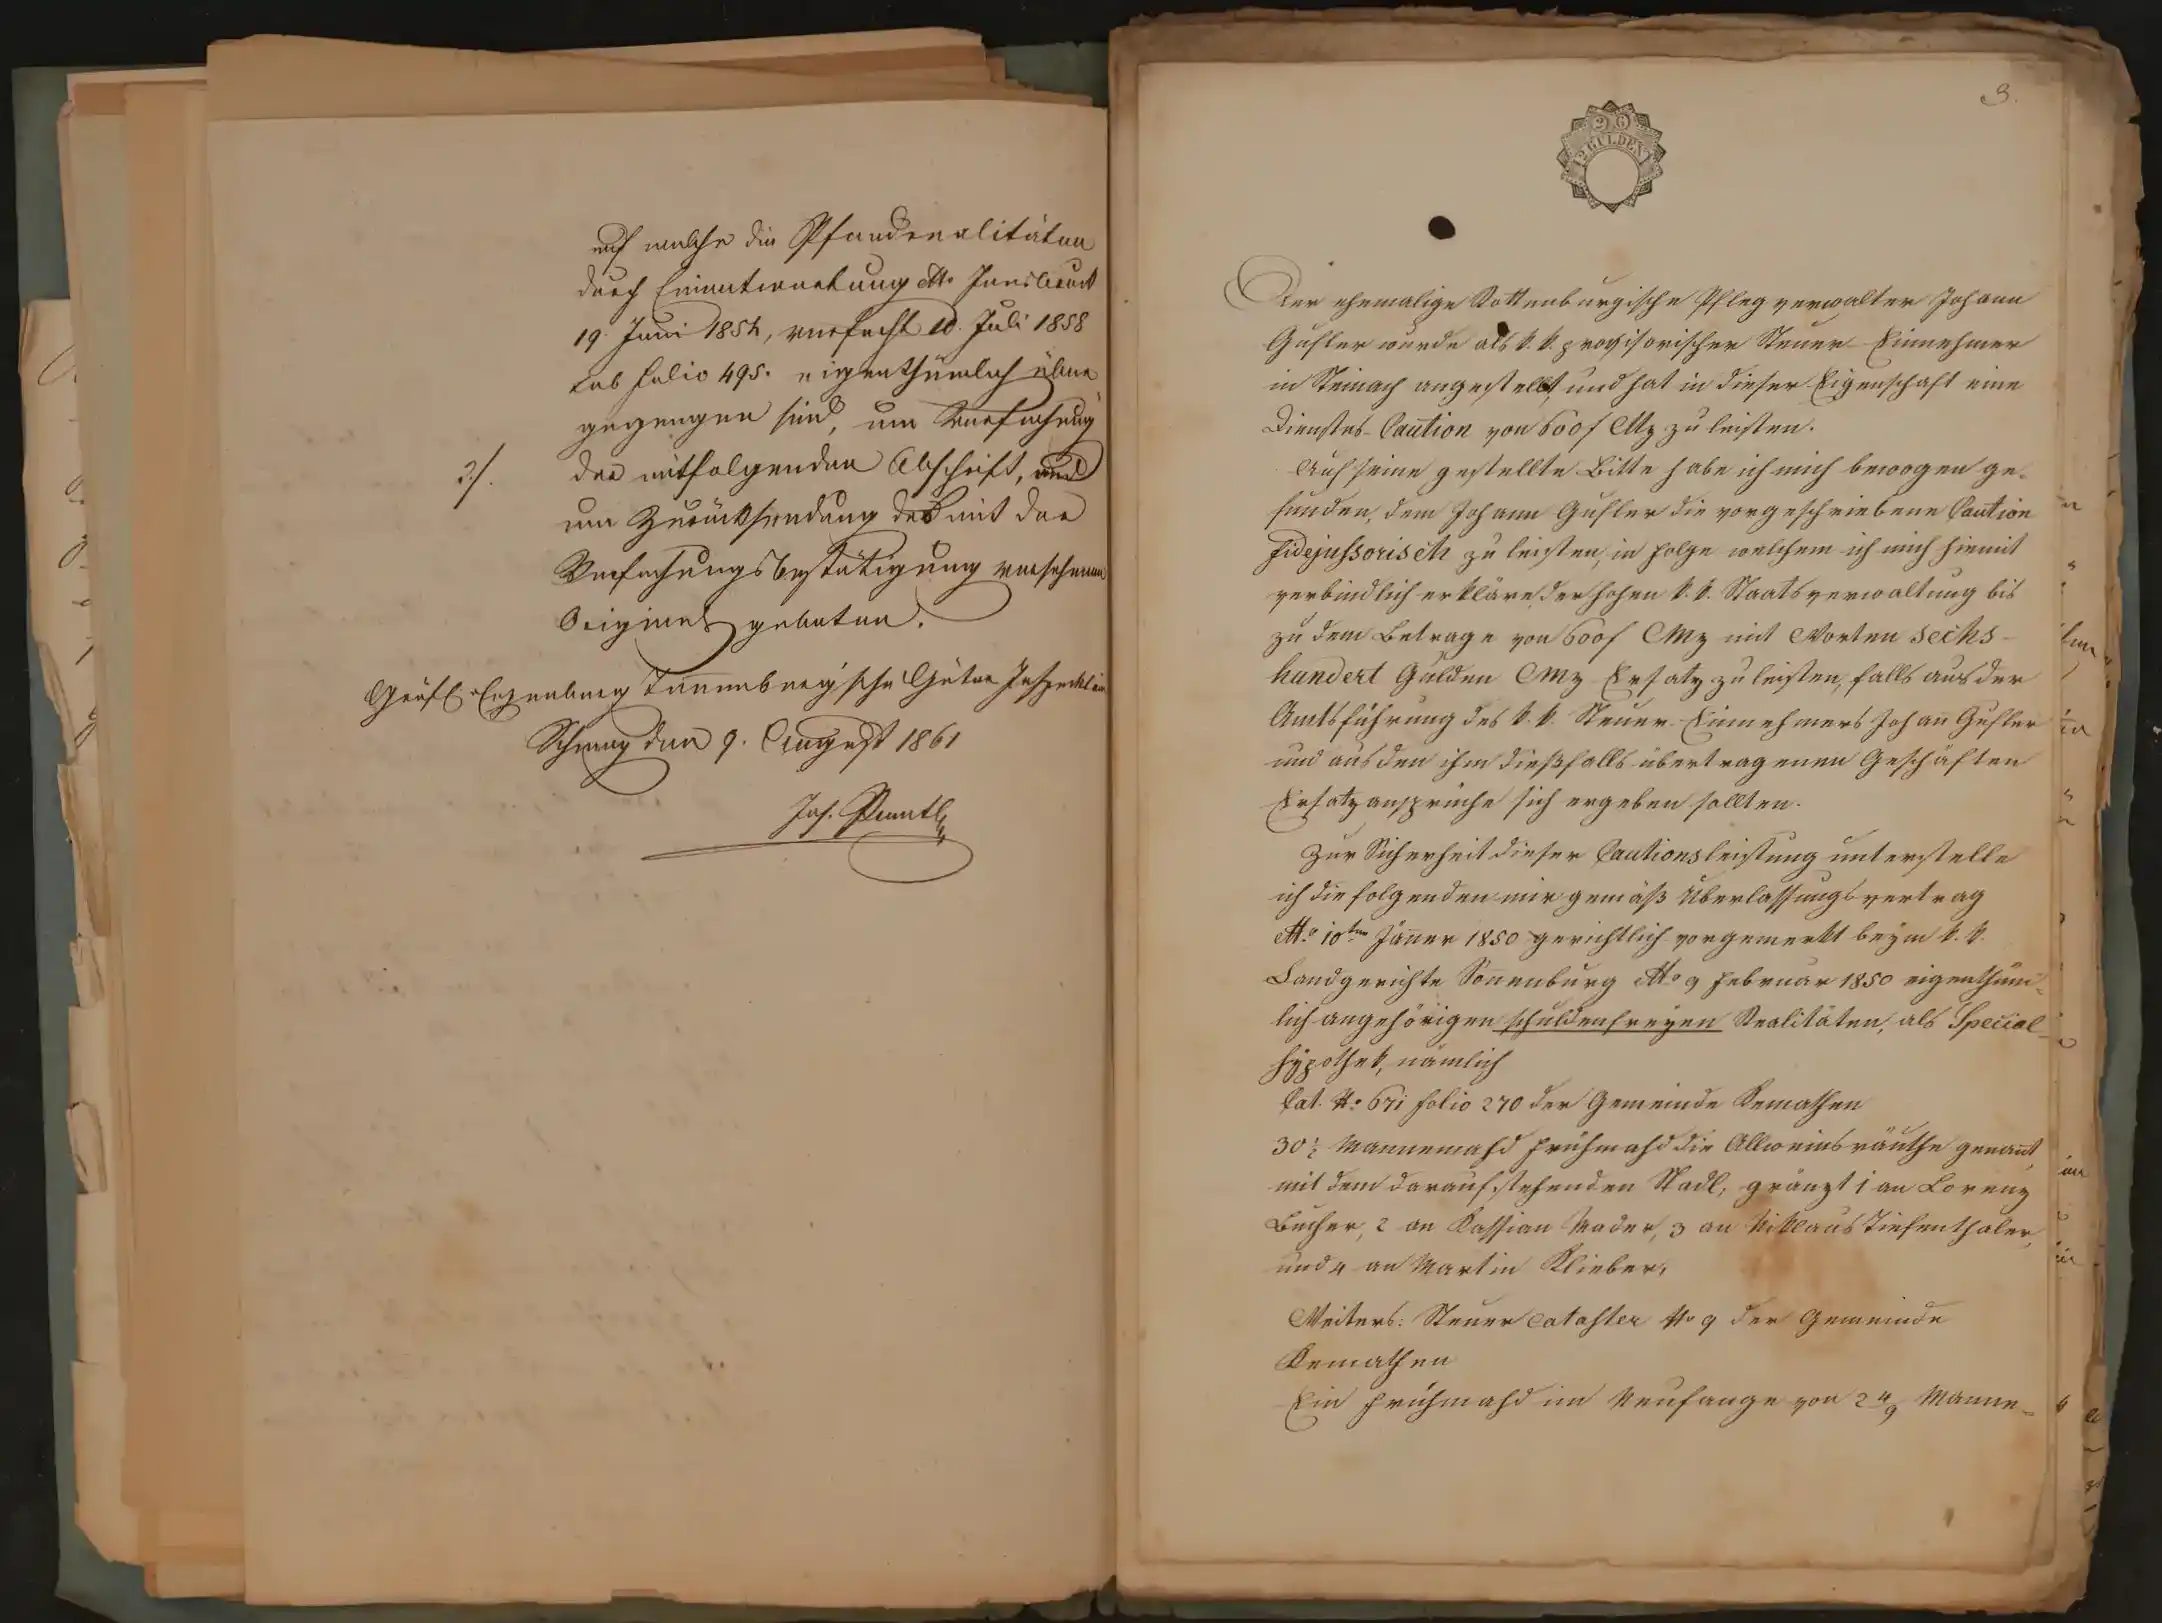 auf welche die Pfandrealitäten
durch Einantwortung dto Innsbruck
19. Juni 1854, verfacht 10. Juli 1858
sub folio 495. eigenthümlich über
gegangen sind, um Verfachung
2/. der mitfolgenden Abschrift, und
um Zurücksendung des mit der
Verfachungsbestätigung versehenen
Originals gebeten.
Gräfl. Enzenberg Tannenbergische Güter Inspektion
Schwaz den 9. August 1861
Jos.
3.
26
12 GULDEN
Der ehemalige Rottenburgische Pflegverwalter Johann
Gufler wurde als k. k. provisorischer Steuer-Einnehmer
in Steinach angestellt, und hat in dieser Eigenschaft eine
Dienstes-Caution von 600 f CMz zu leisten.
Auf seine gestellte Bitte habe ich mich bewogen ge-
funden, dem Johann Gufler die vorgeschriebene Caution
fidejussorisch zu leisten, in Folge welchem ich mich hiemit
verbindlich erkläre, der hohen k. k. Staatsverwaltung bis
zu dem Betrage von 600 f CMz mit Worten sechs-
hundert Gulden CMz Ersatz zu leisten, falls aus der
Amtsführung des k. k. Steuer-Einnehmers Johan̄ Gufler
und aus den ihm dießfalls übertragenen Geschäften
Ersatzansprüche sich ergeben sollten.
Zur Sicherheit dieser Cautionsleistung unterstelle
ich die folgenden mir gemäß Überlassungsvertrag
dto. 10ten Jän̄er 1850 gerichtlich vorgemerkt beym k. k.
Landgerichte Son̄enburg dto 9 Februar 1850 eigenthüm-
lich angehörigen schuldenfreyen Realitäten, als Special-
hypothek, nämlich
Cat. No 671 folio 270 der Gemeinde Kemathen
30 ½ Mannemahd Frühmahd die Allweinsräuthe genan̄t,
mit dem darauf stehenden Stadl, gränzt 1 an Lorenz
Bucher, 2 an Kassian Mader, 3 an Niklaus Tiefenthaler,
und 4 an Martin Klieber,
Weiters: Steuer Catahster No 9 der Gemeinde
Kemathen
Ein Frühmahd im Neufange von 2 4/9 Manne-